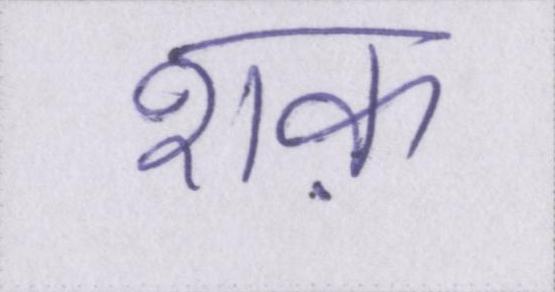 शक़